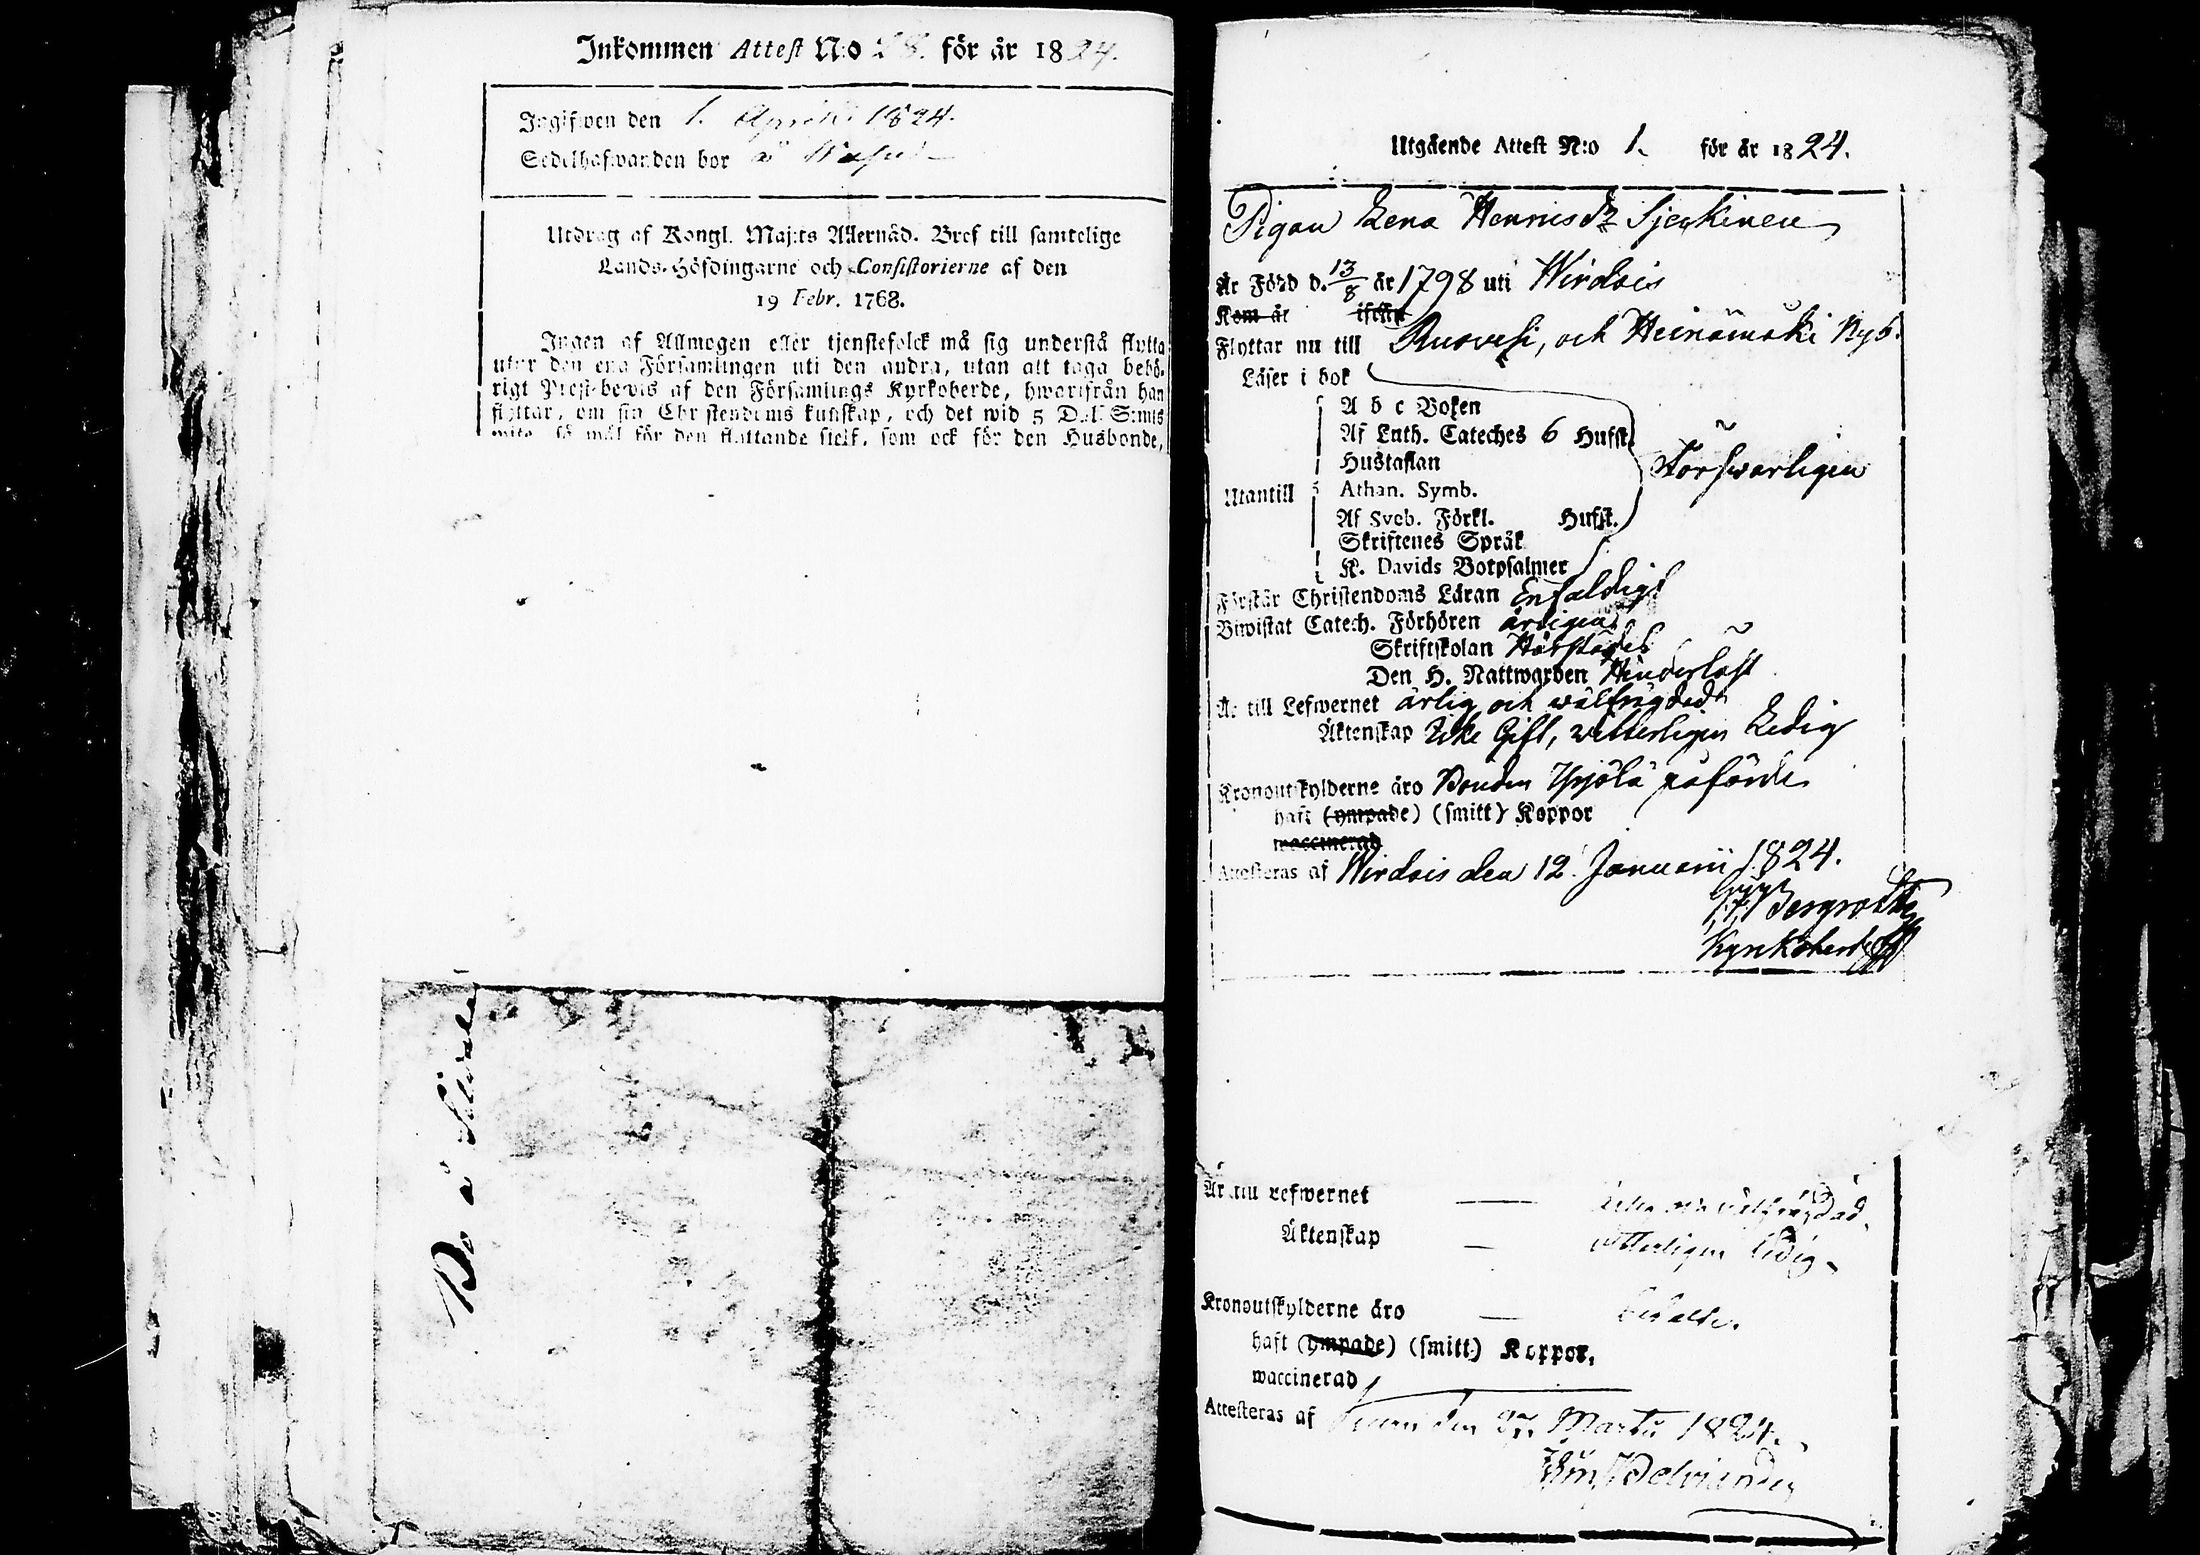 Inkommen Attest N:o 28. för år 1824.
Ingifwen den 1. April 1824.
Sedelhafwanden bor å
Utdrag af Kongl. Maj:ts Allernåd. Bref till samtelige
Lands-Höfdingarne och Consistorierne af den
19 Febr. 1768.
Ingen af Allmogen eller tjenstefolck må sig understå flytta
utur den ena Församlingen uti den andra, utan att taga behö-
rigt Prest-bewis af den Församlings Kyrkoherde, hwarifrån han
flyttar, om sin Christendoms kunskap, och det wid 5 Dal. S:mts
wite, så wäl för den flyttande sielf, som ock för den Husbonde,
Bo å
Utgående Attest N:o 1. för år 1824.
Pigan Lena Henricsdr
Är Född d. 13/8 år 1798 uti Wirdois
Kom år ifrån
Flyttar nu till Ruovesi, och Heinämäki Nyb.
Läser i bok
A b c Boken
Af Luth. Cateches 6 Hufst.
Hustaflan
Försvarligen
Utantill Athan. Symb.
Af Sveb. Förkl. Hufst.
Skriftenes Språk
K. Davids Botpsalmer
Förstår Christendoms Läran Enfaldigt
Biwistat Catech. Förhören årligen
Skriftskolan Härstädes
Den H. Nattwarden Hinderlöst
Är till Lefwernet ärlig och wälfrägdad
Äktenskap Icke Gift, witterligen Ledig
Kronoutskylderne äro Bonden påförde
haft (ympade) (smitt) Koppor
waccinerad
Attesteras af Wirdois den 12 Januarii 1824.
Bergroth
Kyrkoherde
Är till Lefwernet — wälfrägdad.
Äktenskap — witterligen ledig.
Kronoutskylderne äro — betalte.
haft (ympade) (smitt) Koppor.
waccinerad
Attesteras af den 27 Martii 1824.